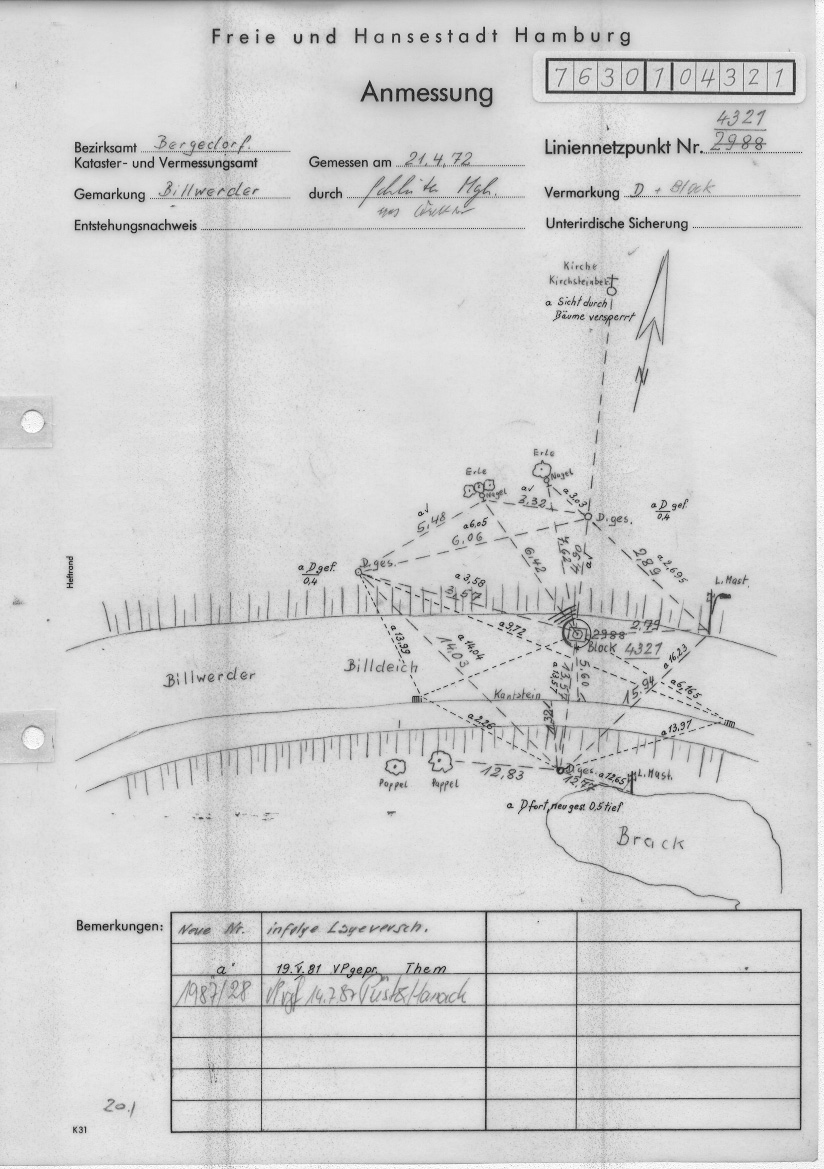 Freie und Hansestadt Hamburg
7630104321
Anmessung
4321
Bezirksamt Bergedorf.
Liniennetzpunkt Nr. 2988
Kataster- und Vermessungsamt
Gemessen am 21.4.72
Gemarkung Billwerder
durch
Vermarkung D + Block
Entstehungsnachweis
Unterirdische Sicherung
Kirche
Kirchsteinbek
a Sicht durch
Bäume versperrt
N
Erle
Nagel
Erle
Nagel
a√
3,32
a 3,03
a√
5,48
a 6,05
6,06
D.ges.
a D gef.
0,4
Heftrand
a D gef.
0,4
D.ges.
6,42
4,62
4,90
a√
2,89
a 2,695
L.Mast.
a 3,58
3,57
a 9,72
2,79
2988
Block 4321
a 13,99
a 14,04
14,03
a 16,23
15,94
a 6,165
Billwerder
Billdeich
Kantstein
a 13,57
13,57
5,60
a 2,26
a 13,97
Pappel
Pappel
12,83
D.ges.
a 12,65
L.Mast.
a D fort, neu ges. 0,5 tief
Brack
Bemerkungen:
Neue Nr. infolge Lageversch.
"a" 19.V.81 VP gepr. Them
1987/28 14.7.87
20.1
K31